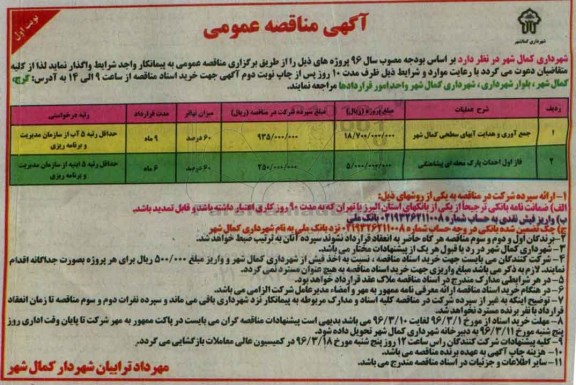 آگهی مناقصه عمومی
نوبت اول
شهرداری کمال شهر
شهرداری کمال شهر در نظر دارد بر اساس بودجه مصوب سال ۹۶ پروژه های ذیل را از طریق برگزاری مناقصه عمومی به پیمانکار واجد شرایط واگذار نماید لذا از کلیه
متقاضیان دعوت می گردد با رعایت موارد و شرایط ذیل ظرف مدت ۱۰ روز پس از چاپ نوبت دوم آگهی جهت خرید اسناد مناقصه از ساعت ۹ الی ۱۴ به آدرس: کرج،
کمال شهر، بلوار شهرداری، شهرداری کمال شهر واحد امور قراردادها مراجعه نمایند.
ردیف شرح عملیات مبلغ پروژه (ریال) مبلغ سپرده شرکت در مناقصه (ریال) میزان تعدیل مدت قرارداد رتبه درخواستی
۱ جمع آوری و هدایت آبهای سطحی کمال شهر ۱۸/۷۰۰/۰۰۰/۰۰۰ ۹۳۵/۰۰۰/۰۰۰ ۶۰ درصد ۹ ماه حداقل رتبه ۵ آب از سازمان مدیریت و برنامه ریزی
۲ فاز اول احداث پارک محله ای پیشاهنگی ۵/۰۰۰/۰۰۰/۰۰۰ ۲۵۰/۰۰۰/۰۰۰ ۶۰ درصد ۶ ماه حداقل رتبه ۵ ابنیه از سازمان مدیریت و برنامه ریزی
۱- ارائه سپرده شرکت در مناقصه به یکی از روشهای ذیل:
الف) ضمانت نامه بانکی ترجیحاً از یکی از بانکهای استان البرز یا تهران که به مدت ۹۰ روز کاری اعتبار داشته باشد و قابل تمدید باشد.
ب) واریز فیش نقدی به حساب شماره ۰۲۱۹۳۲۶۲۱۱۰۰۸ بانک ملی
ج) چک تضمین شده بانکی در وجه حساب شماره ۰۲۱۹۳۲۶۲۱۱۰۰۸ نزد بانک ملی به نام شهرداری کمال شهر
۲- برندگان اول و دوم و سوم مناقصه هر گاه حاضر به انعقاد قرارداد نشوند، سپرده آنان به ترتیب ضبط خواهد شد.
۳- شهرداری کمال شهر در رد یا قبول هر یک از پیشنهادات مختار می باشد.
۴- شرکت کنندگان می بایست جهت خرید اسناد مناقصه، نسبت به اخذ فیش از شهرداری کمال شهر و واریز مبلغ ۵۰۰/۰۰۰ ریال برای هر پروژه بصورت جداگانه اقدام
نمایند. لازم به ذکر می باشد مبلغ واریزی جهت خرید اسناد مناقصه به هیچ عنوان مسترد نمی گردد.
۵- در هر شرایطی مدارک مندرج در اسناد مناقصه ملاک عقد قرارداد خواهد بود.
۶- در هنگام خرید اسناد مناقصه ارائه معرفی نامه ممهور به مهر و امضاء مدیرعامل شرکت الزامی می باشد.
۷- توضیح اینکه به غیر از سپرده شرکت در مناقصه کلیه اسناد و مدارک مربوطه به پیمانکار نزد شهرداری باقی می ماند و سپرده نفرات دوم و سوم مناقصه تا زمان انعقاد
قرارداد با نفر برنده مسترد نخواهد شد.
۸- مهلت خرید اسناد از مورخ ۹۶/۳/۱ لغایت ۹۶/۳/۱۰ می باشد بدیهی است پیشنهادات مناقصه گران می بایست در پاکت ممهور به مهر شرکت تا پایان وقت اداری روز
پنج شنبه مورخ ۹۶/۳/۱۱ به دبیرخانه شهرداری کمال شهر تحویل داده شود.
۹- کلیه پیشنهادات شرکت کنندگان راس ساعت ۱۲ روز پنج شنبه مورخ ۹۶/۳/۱۸ در کمیسیون عالی معاملات بازگشایی می گردد.
۱۰- هزینه چاپ آگهی به عهده برنده مناقصه می باشد.
۱۱- سایر اطلاعات و جزئیات در اسناد مناقصه مندرج می باشد.
مهرداد ترابیان شهردار کمال شهر